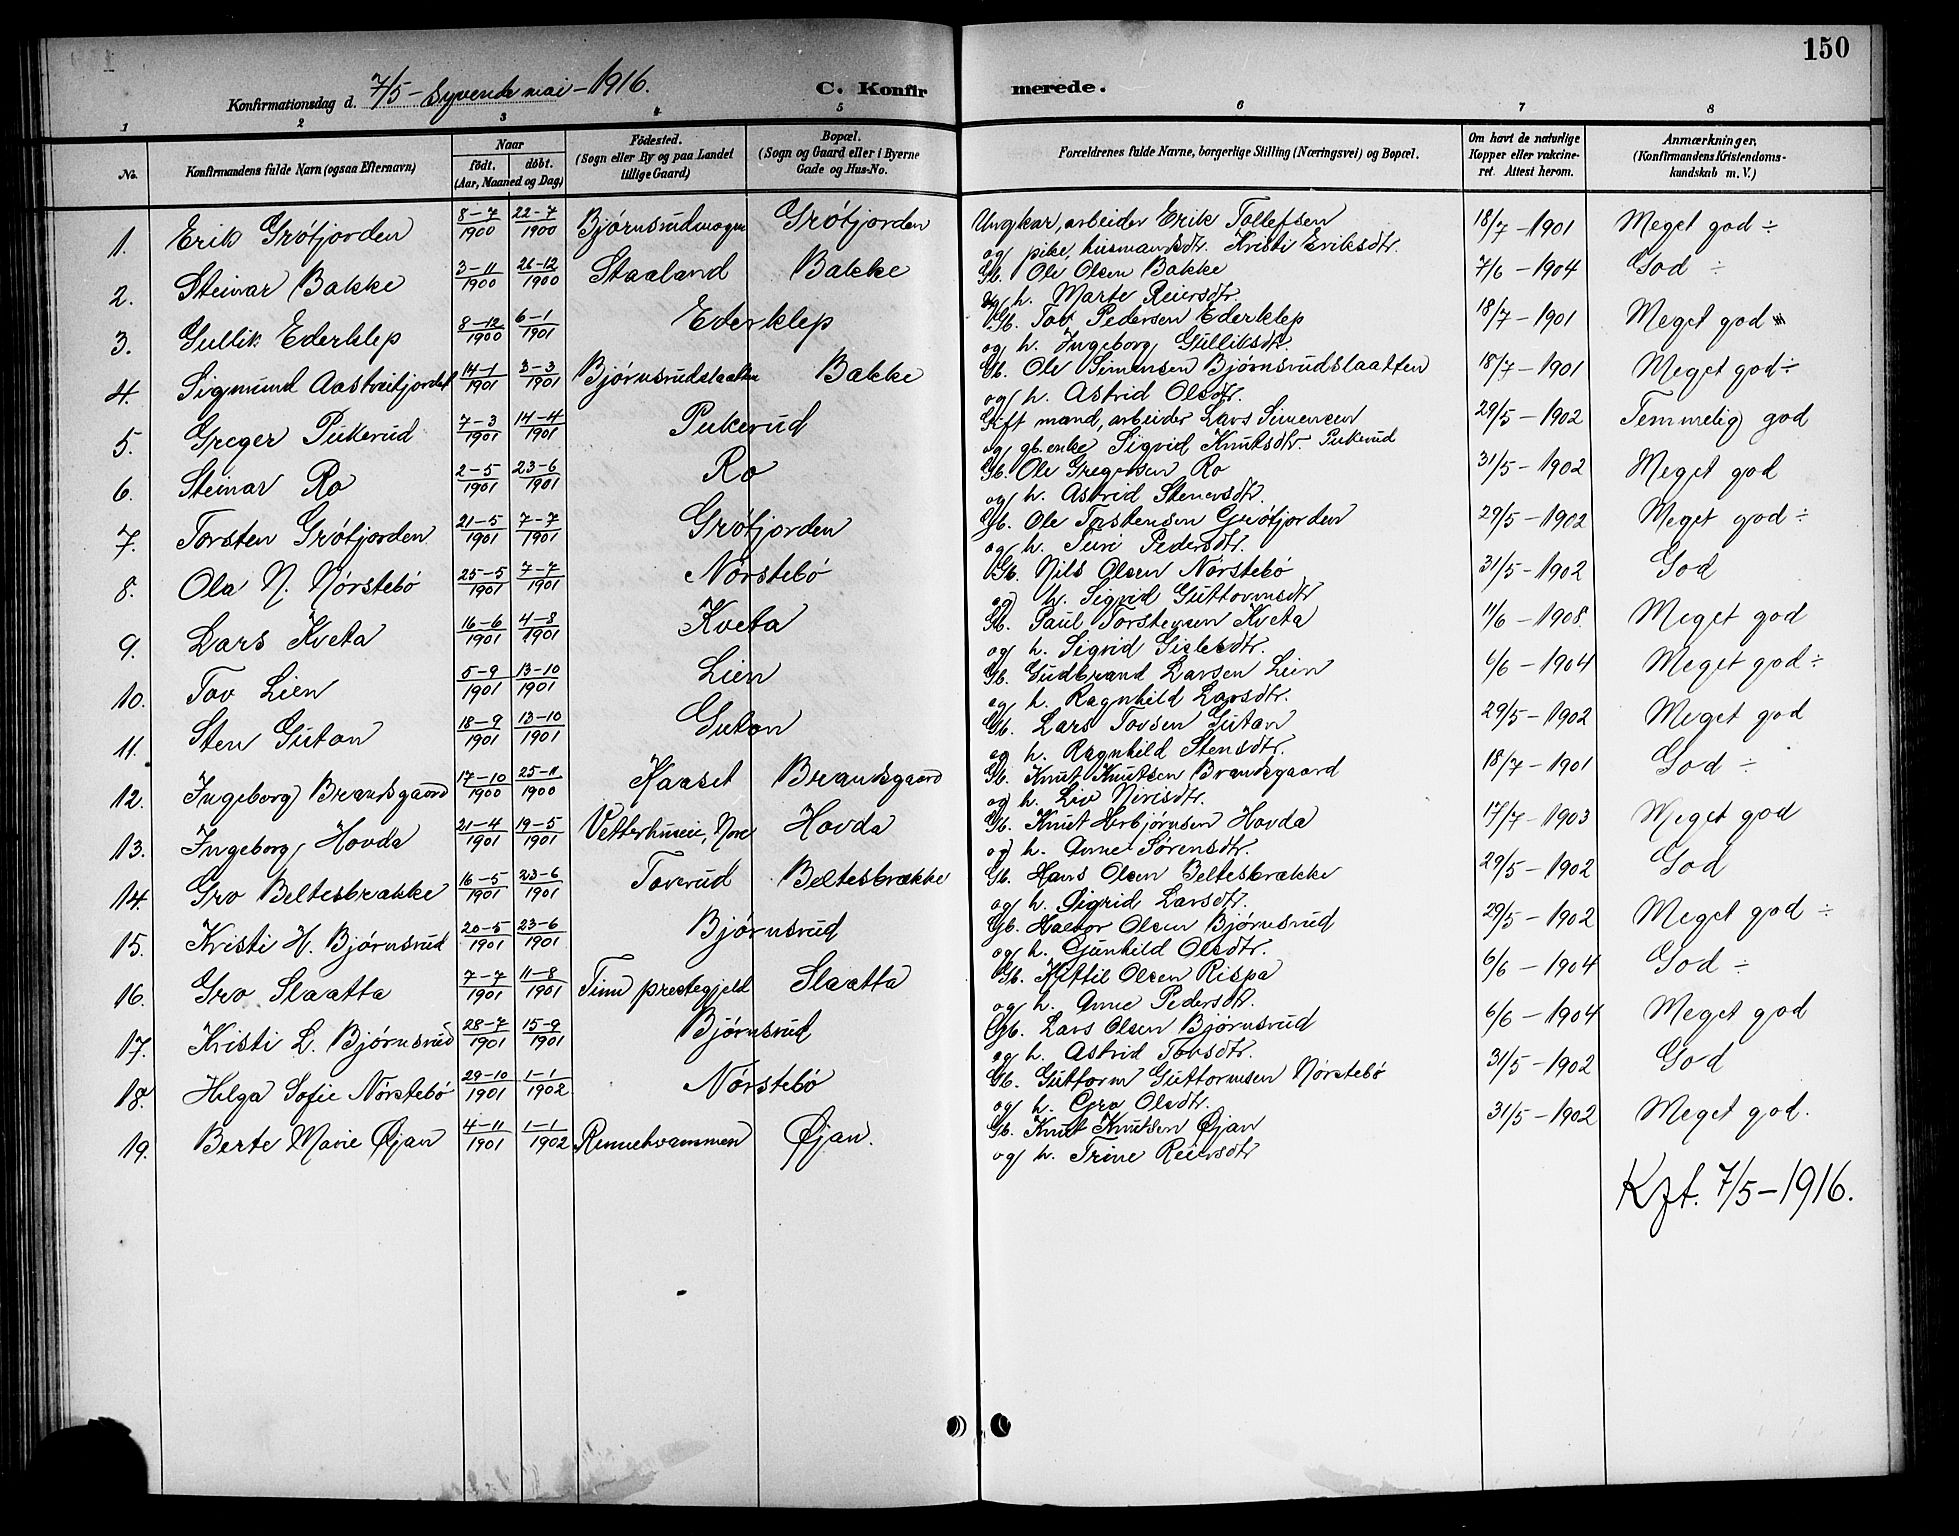 150
Konfirmationsdag d. 7/5 – syvende mai – 1916. C. Konfirmerede.
1 2 3 4 5 6 7 8
No. Konfirmandens fulde Navn (ogsaa Efternavn) Naar født. døbt. (Aar, Maaned og Dag) Fødested. (Sogn eller By og paa Landet tillige Gaard) Bopæl. (Sogn og Gaard eller i Byerne Gade og Hus-No. Forældrenes fulde Navne, borgerlige Stilling (Næringsvei) og Bopæl. Om havt de naturlige Kopper eller vakcineret. Attest herom. Anmærkninger, (Konfirmandens Kristendomskundskab m. V.)
1. Erik Grøtjorden 8–7 1900 22–7 1900 Bjørnsrudmogen Grøtjorden Ungkar, arbeider Erik Tollefsen 18/7 – 1901 Meget god ÷
og pike, husmannsdtr. Kristi Eriksdtr.
2. Steinar Bakke 3–11 1900 26–12 1900 Staaland Bakke Gb. Ole Olsen Bakke 7/6 – 1904 God ÷
og h. Marte Reiersdtr.
3. Gullik Ederklep 8–12 1900 6–1 1901 Ederklep Gb. Tov Pedersen Ederklep 18/7 – 1901 Meget god
og h. Ingeborg Gulliksdtr
4. Sigmund Aastveitjordet 14–1 1901 3–3 1901 Bjørnsrudslaatten Bakke Gb. Ole Simensen Bjørnsrudslaatten 18/7 – 1901 Meget god ÷
og h. Astrid Olsdtr.
5. Greger Pukerud 7–3 1901 14–4 1901 Pukerud Gift mand, arbeider Lars Simensen 29/5 – 1902 Temmelig god
og gb. enke Sigrid Knutsdtr. Pukerud
6. Steinar Ro 2–5 1901 23–6 1901 Ro Gb. Ole Gregersen Ro 31/5 – 1902 Meget god
og h. Astrid Stenersdtr.
7. Torsten Grøtjorden 21–5 1901 7–7 1901 Grøtjorden Gb. Ole Torstensen Grøtjorden 29/5 – 1902 Meget god ÷
og h. Turi Pedersdtr.
8. Ola N. Nørstebø 25–5 1901 7–7 1901 Nørstebø Gb. Nils Olsen Nørstebø 31/5 – 1902 God
og h. Sigrid Guttormsdtr
9. Lars Kveta 16–6 1901 4–8 1901 Kveta Gb. Paul Torstensen Kveta 11/6 – 1908. Meget god
og h. Sigrid Gislesdtr.
10. Tov Lien 5–9 1901 13–10 1901 Lien Gb. Gudbrand Larsen Lein 6/6 – 1904 Meget god ÷
og h. Ragnhild Larsdtr.
11. Sten Guton 18–9 1901 13–10 1901 Guton Gb. Lars Tovsen Guton 29/5 – 1902 Meget god
og h. Ragnhild Stensdtr.
12. Ingeborg Brandsgaard 17–10 1900 25–11 1900 Kaaset Brandsgaard Gb. Knut Knutsen Brandsgaard 18/7 – 1901 God ÷
og h. Liv Nirisdtr.
13. Ingeborg Hovda 21–4 1901 19–5 1901 Vetterhuseie, Nore Hovda Gb. Knut Herbjørnsen Hovda 17/7 – 1903 Meget god
og h. Anne Sørensdtr.
14. Gro Beltesbrække 16–5 1901 23–6 1901 Toverud Beltesbrække Gb. Hans Olsen Beltesbrække 29/5 – 1902 God
og h. Sigrid Larsdtr.
15. Kristi H. Bjørnsrud 20–5 1901 23–6 1901 Bjørnsrud Gb. Halvor Olsen Bjørnsrud 29/5 – 1902 Meget god ÷
og h. Gunhild Olsdtr.
16. Gro Slaatta 7–7 1901 11–8 1901 Tinn prestegjeld Slaatta Gb. Kittil Olsen Rispa 6/6 – 1904 God ÷
og h. Anne Pedersdtr.
17. Kristi L. Bjørnsrud 28–7 1901 15–9 1901 Bjørnsrud Gb. Lars Olsen Bjørnsrud 6/6 – 1904 Meget god
og h. Astrid Tovsdtr.
18. Helga Sofie Nørstebø 29–10 1901 1–1 1902 Nørstebø Gb. Guttorm Guttormsen Nørstebø 31/5 – 1902 God
og h. Gro Olsdtr.
19. Berte Marie Øjan 4–11 1901 1–1 1902 Rennehvammen Øjan. Gb. Knut Knutsen Øjan 31/5 – 1902 Meget god.
og h. Trine Reiersdtr
Kft. 7/5 – 1916.